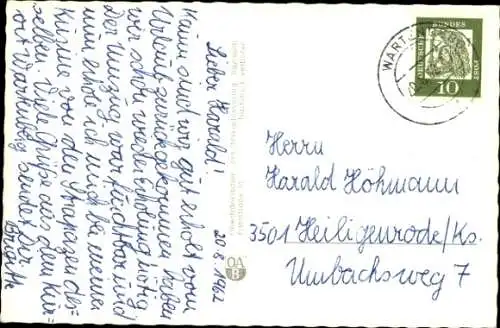 20.8.1962
Lieber Harald!
Kaum sind wir gut erholt vom
Urlaub zurückgekommen, haben
wir schon wieder Erholung nötig
Der Umzug war furchtbar und
nun erhole ich mich bei meiner
Kusine von den Strapazen des-
selben. Viele Grüße aus dem Kur-
ort Wartenberg sendet Dir
Brigitte
DEUTSCHE
BUNDES
POST
10
WART
Herrn
Harald Höhmann
3501 Heiligenrode/Ks.
Umbachsweg 7